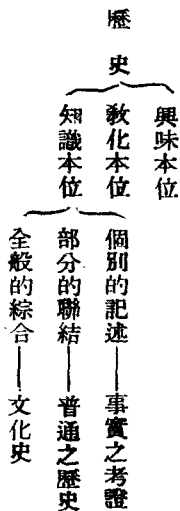 歷史
興味本位
敎化本位
知識本位
個別的記述——事實之考證
部分的聯結——普通之歷史
全般的綜合——文化史